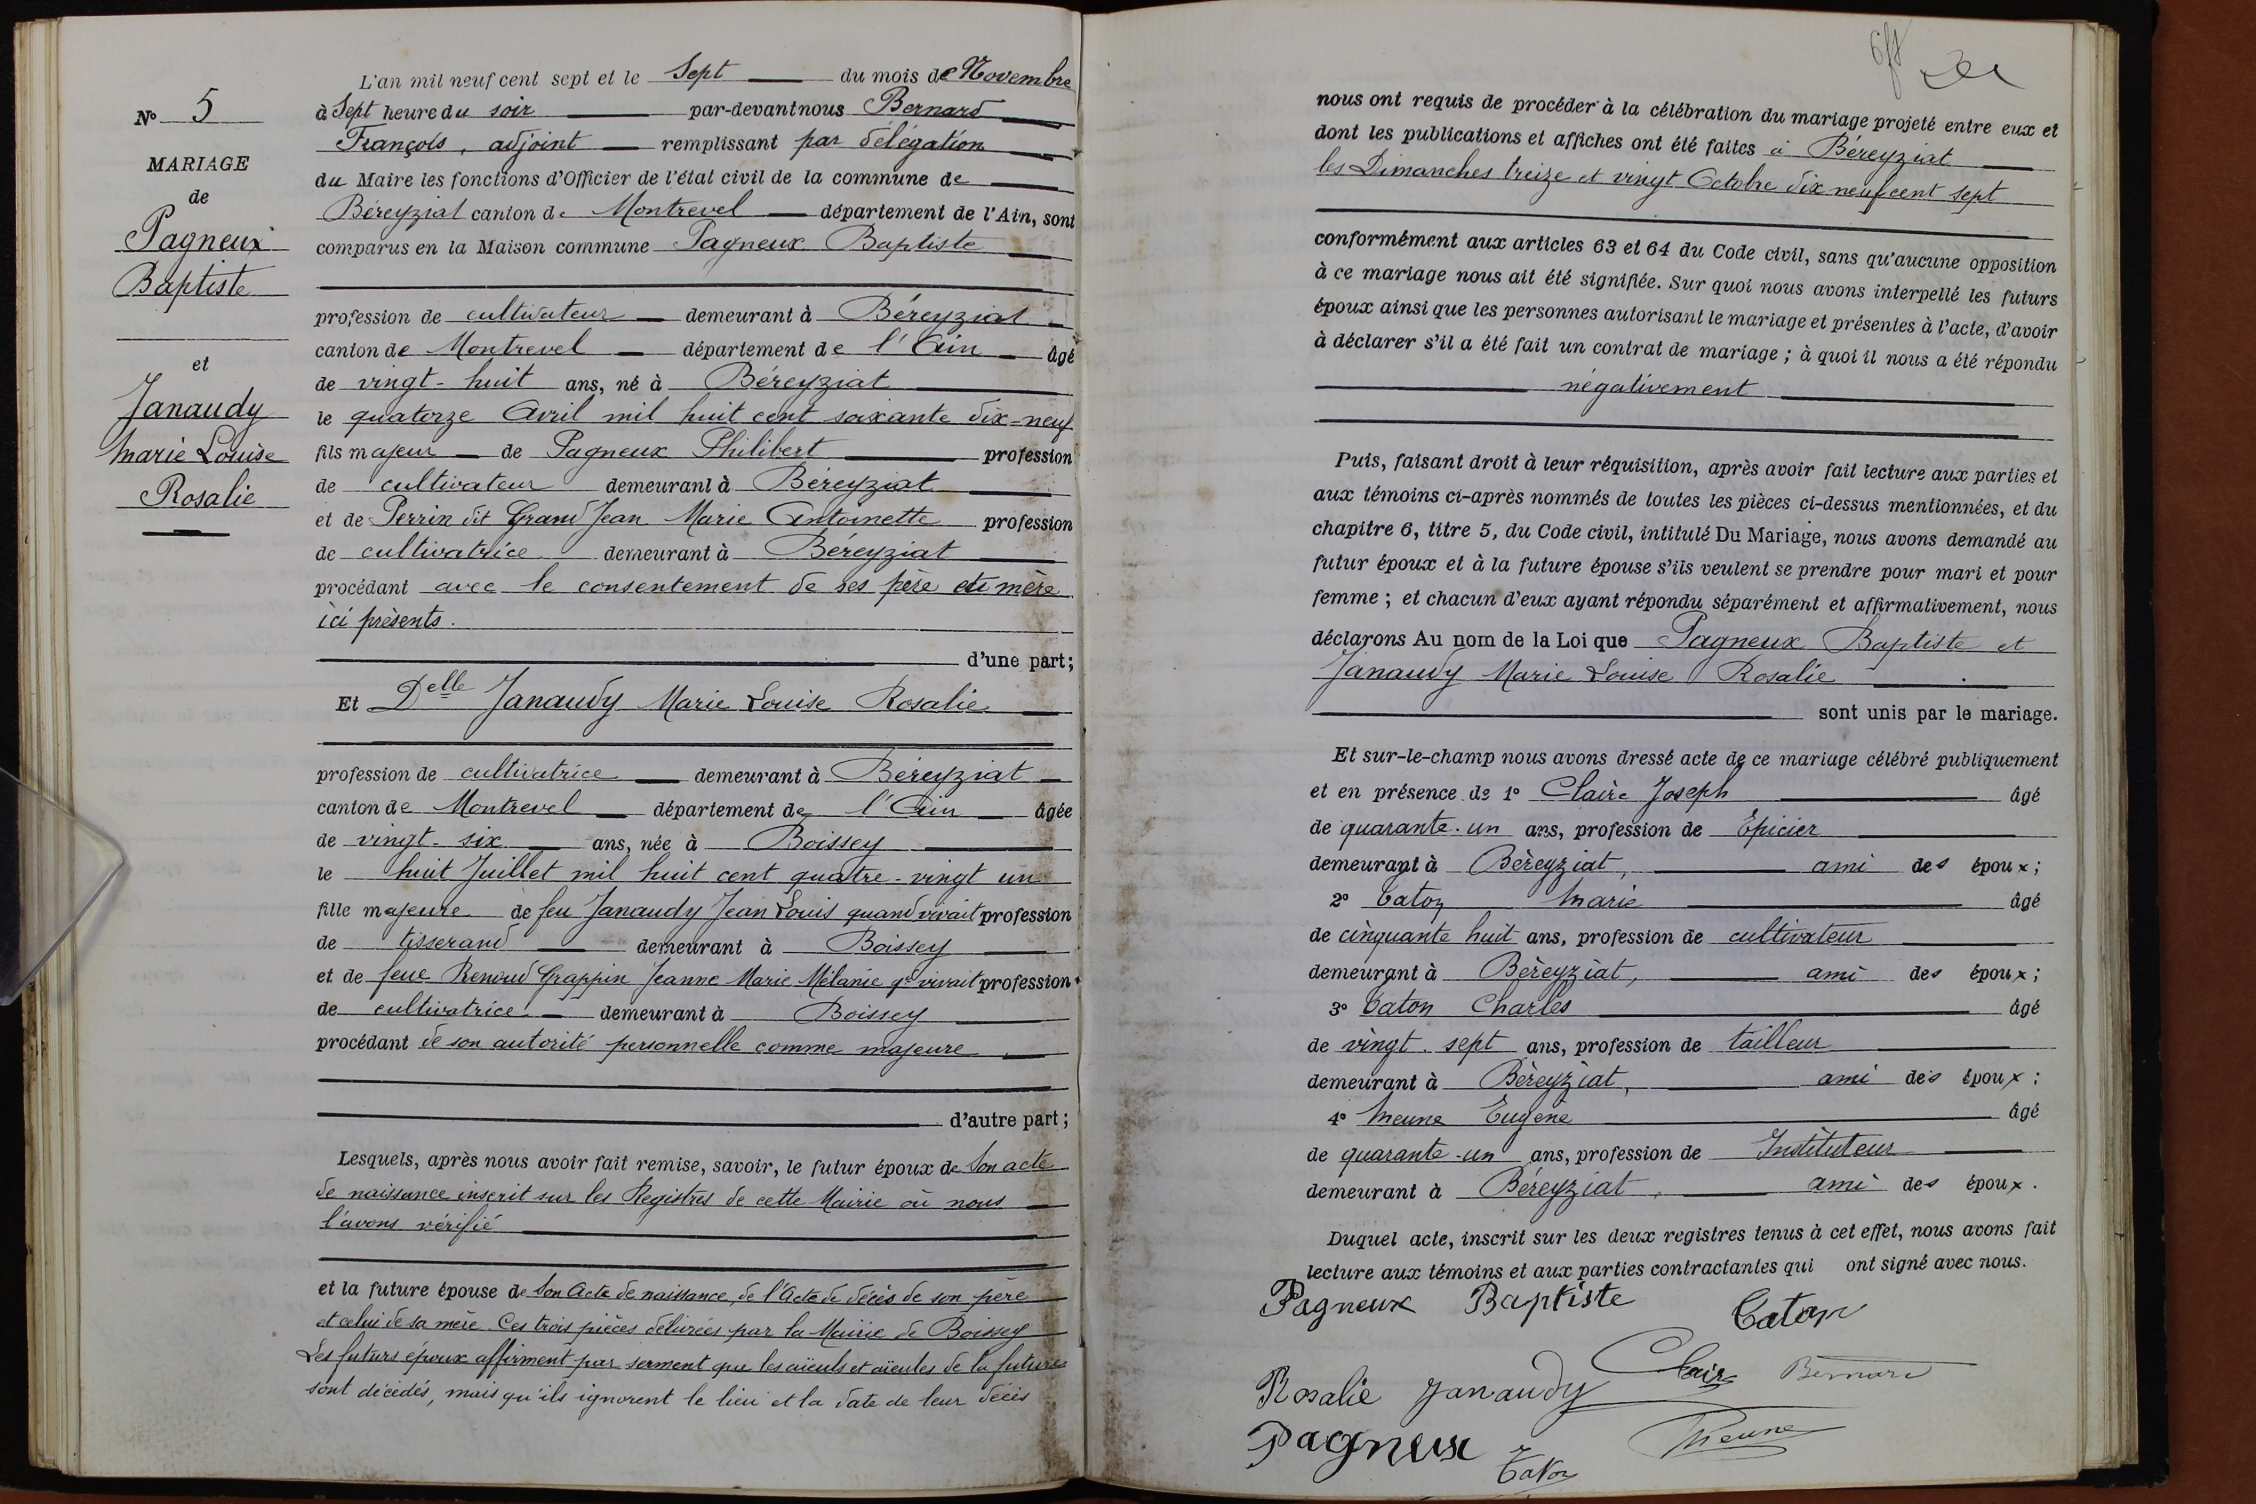 N° 5
MARIAGE
de
Pagneux
Baptiste
et
Janaudy
Marie Louise
Rosalie
L'an mil neuf cent sept et le Sept du mois de Novembre
à Sept heure du soir par-devant nous Bernard
François, adjoint remplissant par délégation
du Maire les fonctions d'Officier de l'état civil de la commune de
Béreyziat canton de Montrevel département de l'Ain, sont
comparus en la Maison commune Pagneux Baptiste
profession de cultivateur demeurant à Béreyziat
canton de Montrevel département de l'Ain âgé
de vingt-huit ans, né à Béreyziat
le quatorze Avril mil huit cent soixante dix-neuf
fils majeur de Pagneux Philibert profession
de cultivateur demeurant à Béreyziat
et de Perrin dit Grand Jean Marie Antoinette profession
de cultivatrice demeurant à Béreyziat
procédant avec le consentement de ses père et mère
ici présents.
d'une part;
Et Delle Janaudy Marie Louise Rosalie
profession de cultivatrice demeurant à Béreyziat
canton de Montrevel département de l'Ain âgée
de vingt-six ans, née à Boissey
le huit Juillet mil huit cent quatre-vingt un
fille majeure de feu Janaudy Jean Louis quand vivait profession
de tisserand demeurant à Boissey
et de feue Renoud Grappin Jeanne Marie Mélanie qd vivait profession
de cultivatrice demeurant à Boissey
procédant de son autorité personnelle comme majeure
d'autre part;
Lesquels, après nous avoir fait remise, savoir, le futur époux de Son acte
de naissance inscrit sur les Registres de cette Mairie où nous
l'avons vérifié
et la future épouse de Son Acte de naissance, de l'Acte de décès de son père
et celui de sa mère. Ces trois pièces délivrées par la Mairie de Boissey
Les futurs époux affirment par serment que les aïeuls et aïeules de la future
sont décédés, mais qu'ils ignorent le lieu et la date de leur décès
nous ont requis de procéder à la célébration du mariage projeté entre eux et
dont les publications et affiches ont été faites à Béreyziat
les Dimanches treize et vingt Octobre dix neuf cent sept
conformément aux articles 63 et 64 du Code civil, sans qu'aucune opposition
à ce mariage nous ait été signifiée. Sur quoi nous avons interpellé les futurs
époux ainsi que les personnes autorisant le mariage et présentes à l'acte, d'avoir
à déclarer s'il a été fait un contrat de mariage; à quoi il nous a été répondu
négativement
Puis, faisant droit à leur réquisition, après avoir fait lecture aux parties et
aux témoins ci-après nommés de toutes les pièces ci-dessus mentionnées, et du
chapitre 6, titre 5, du Code civil, intitulé Du Mariage, nous avons demandé au
futur époux et à la future épouse s'ils veulent se prendre pour mari et pour
femme; et chacun d'eux ayant répondu séparément et affirmativement, nous
déclarons Au nom de la Loi que Pagneux Baptiste et
Janaudy Marie Louise Rosalie
sont unis par le mariage.
Et sur-le-champ nous avons dressé acte de ce mariage célébré publiquement
et en présence de 1° Claire Joseph âgé
de quarante-un ans, profession de Epicier
demeurant à Béreyziat, ami des époux;
2° Caton Marie âgé
de cinquante huit ans, profession de cultivateur
demeurant à Béreyziat, ami des époux;
3° Caton Charles âgé
de vingt-sept ans, profession de tailleur
demeurant à Béreyziat, ami des époux;
4° Meune Eugène âgé
de quarante-un ans, profession de Instituteur
demeurant à Béreyziat, ami des époux.
Duquel acte, inscrit sur les deux registres tenus à cet effet, nous avons fait
lecture aux témoins et aux parties contractantes qui ont signé avec nous.
Pagneux Baptiste Caton
Clair Bernard
Rosalie Janaudy
Pagneux Meune
Caton